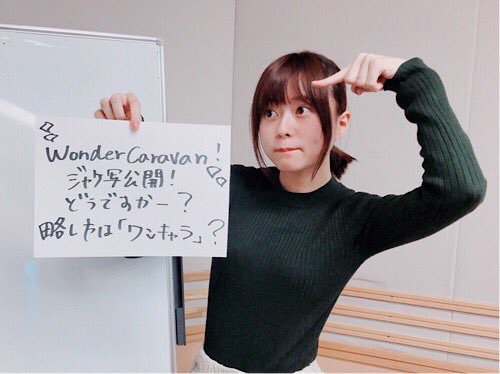 Wonder Caravan!
ジャケ写公開!
どうですかー?
略し方は「ワンキャラ」?